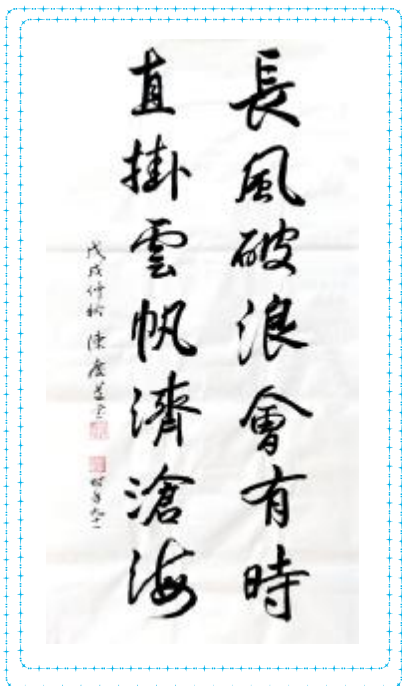 長風破浪會有時
直掛雲帆濟滄海
戊戌仲秋 陳慶
時年九十二